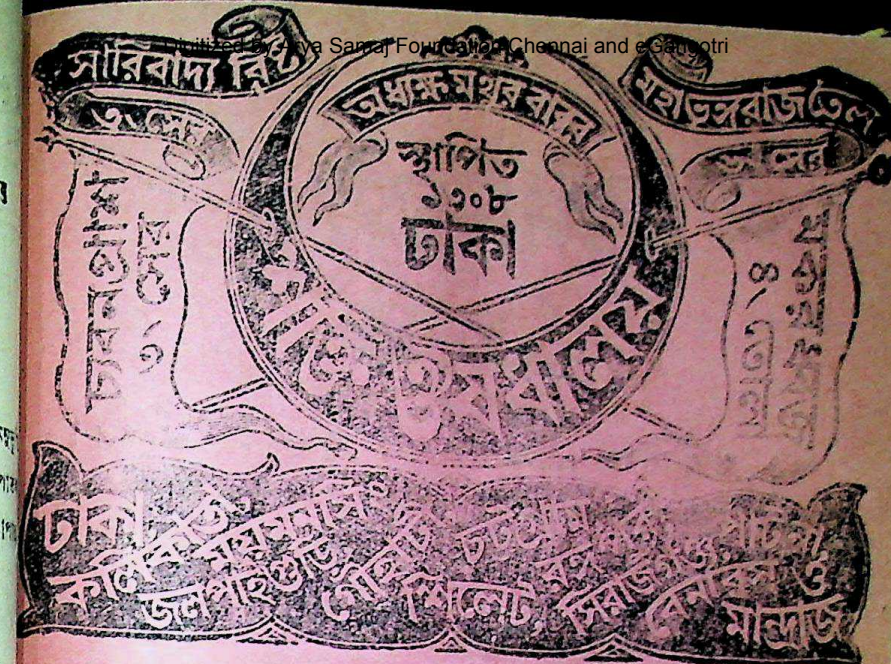 Digitized by Arya Samaj Foundation Chennai and eGangotri
সারিবাদ্যরিষ্ট
৩৲ সের
চবনপ্রাশ
৩৲ সের
অধ্যক্ষ মথুর বাবুর
স্থাপিত
১৩০৮
ঢাকা
শক্তি ঔষধালয়
মহাভৃঙ্গরাজ তৈল
৬৲ সের
মকরধ্বজ
৪৲ তোলা
ঢাকা,
কলিকাতা,
ময়মনসিংহ
চট্টগ্রাম
পাটনা,
জলপাইগুড়ি,
গৌহাটি
শিলেট,
সিরাজগঞ্জ,
বেনারস ও
মান্দ্রাজ